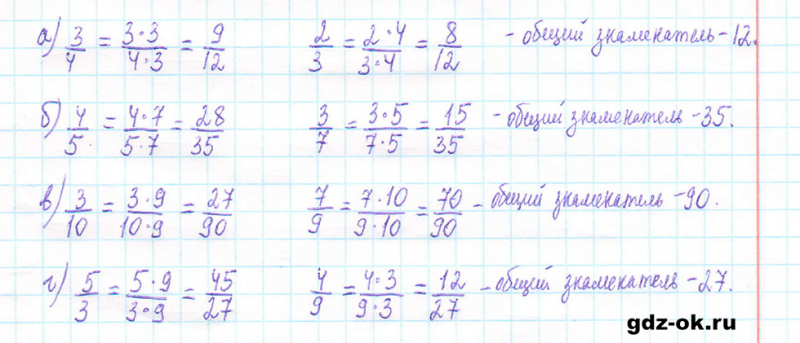 а) 3/4 = 3·3/4·3 = 9/12   2/3 = 2·4/3·4 = 8/12 - общий знаменатель - 12.
б) 4/5 = 4·7/5·7 = 28/35   3/7 = 3·5/7·5 = 15/35 - общий знаменатель - 35.
в) 3/10 = 3·9/10·9 = 27/90   7/9 = 7·10/9·10 = 70/90 - общий знаменатель - 90.
г) 5/3 = 5·9/3·9 = 45/27   4/9 = 4·3/9·3 = 12/27 - общий знаменатель - 27.
gdz-ok.ru